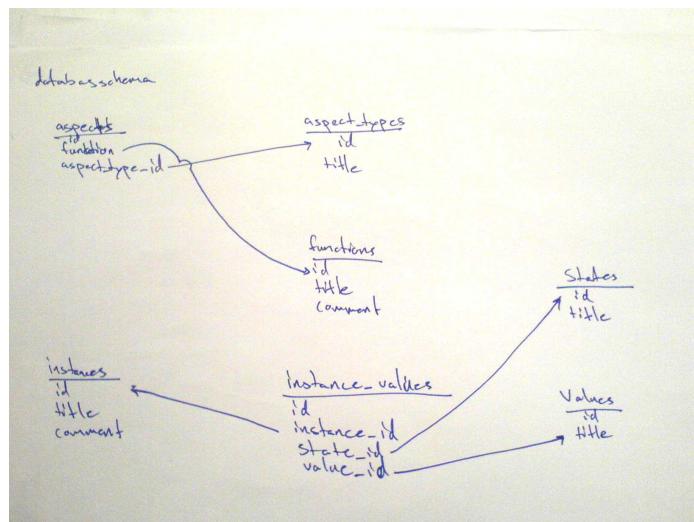 databasschema
aspects
id
funktion
aspect_type_id
aspect_types
id
title
functions
id
title
comment
States
id
title
instances
id
title
comment
instance_values
id
instance_id
state_id
value_id
Values
id
title